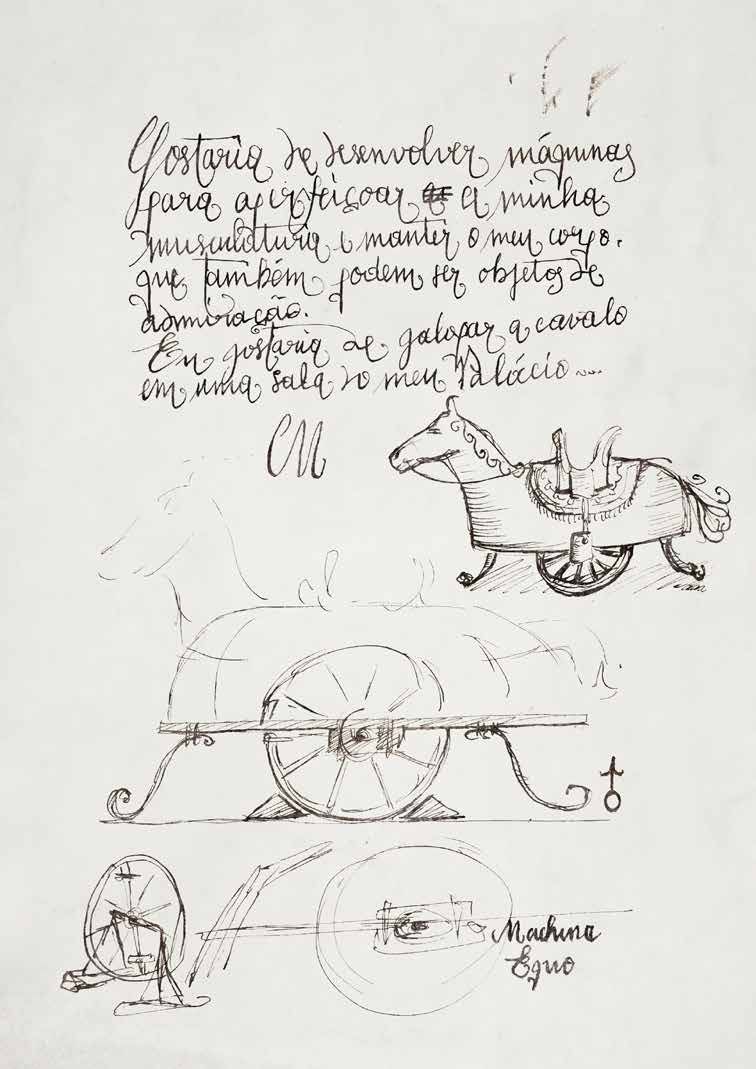 Gostaria de desenvolver máquinas
para aperfeiçoar a minha
musculatura e manter o meu corpo.
que também podem ser objetos de
admiração.
Eu gostaria de galopar a cavalo
em uma sala do meu Palácio...
CM
Machina
Equo